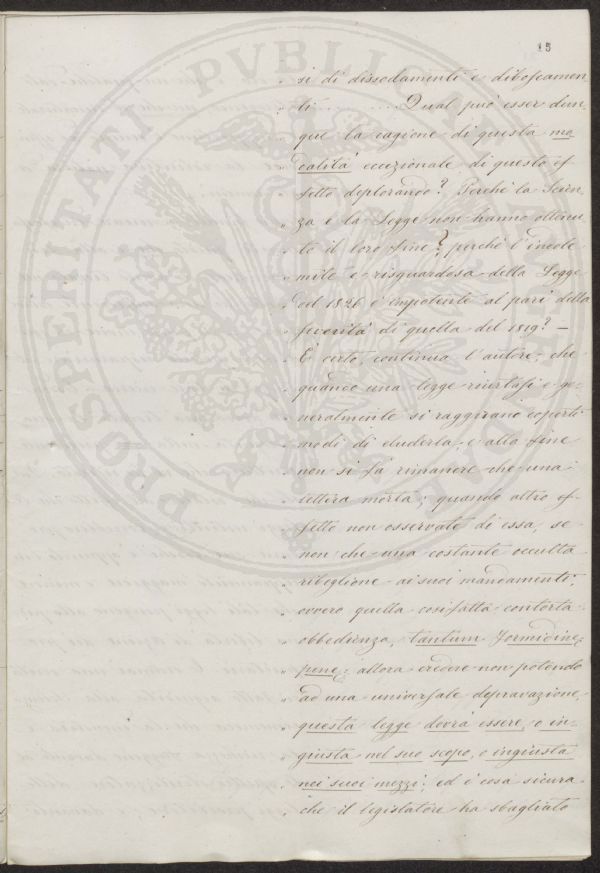 15
" si di dissodamenti e diboscamen
" ti ........ Qual può esser dun,
" que la cagione di questa
" eccezionale, di questo ef
" fetto deplorando? Perchè la Scien,
" za e la Legge non hanno ottenu
" to il loro fine? perchè l'incole
" mite e risguardosa della Legge
" del 1826 è impotente al pari della
" severità di quella del 1819? —
" È certo, continua l'autore, che
" quando una legge ge,
" neralmente si raggirano coperti
" modi di eluderla, e alla fine
" non si fà rimanere che una
" lettera morta; quando altro ef
" fetto non osservate di essa, se
" non che una costante occulta
" ribellione ai suoi mandamenti,
" ovvero quella cosifatta contorta
" obbedienza, tantum formidine,
" pune; allora credere non potendo
" ad una universale depravazione,
" questa legge dovrà essere, o in-
" giusta nel suo scopo, o ingiusta
" nei suoi mezzi; ed è cosa sicura
" che il legislatore ha sbagliato
PROSPERITATI PVBLICAE